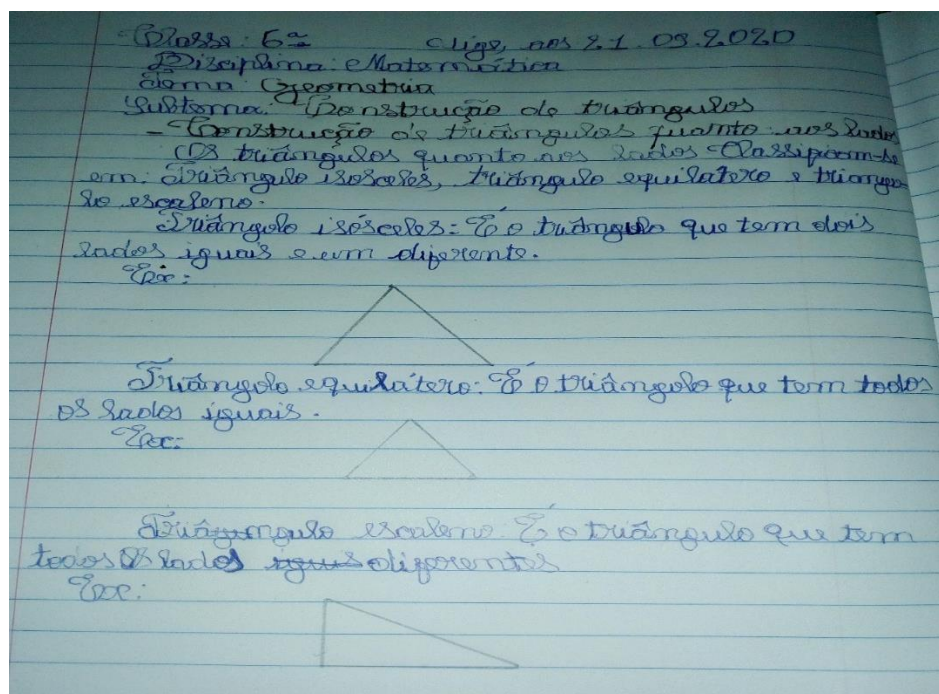 Classe: 6ª Uíge, aos 21.09.2020
Disciplina: Matemática
Tema: Geometria
Subtema: Construção de triângulos
- Construção de triângulos quanto aos lados
Os triângulos quanto aos lados Classificam-se
em: Triângulo isosceles, triângulo equilatero e triangu-
lo escaleno.
Triângulo isósceles: É o triângulo que tem dois
lados iguais e um diferente.
Ex:
Triângolo equilátero: É o triângolo que tem todos
os lados iguais.
Ex:
Triângulo escaleno: É o triângulo que tem
todos os lados diferentes
Ex: